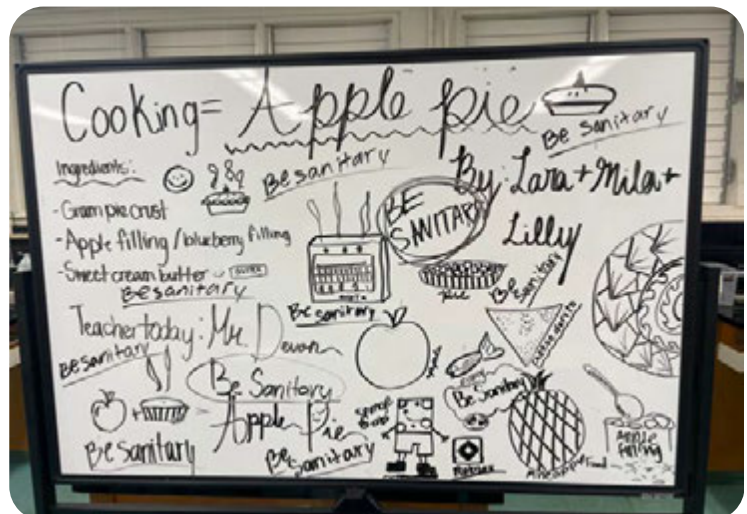 Cooking= Apple pie
Be sanitary
Ingredients:
Be sanitary
By: Lara + Mila +
Lilly
- Gram pie crust
- Apple filling / blueberry filling
- Sweet cream butter
Be sanitary
BE
SANITARY
Pie
Be sanitary
Be sanitary
Teacher today: Mr. Devon
Be sanitary
Be Sanitary
Apple Pie
Be sanitary
Be sanitary
Be sanitary
Apple
filling